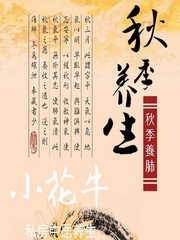 秋季养生
秋季養肺
秋三月 此謂容平 天氣以急 地
氣以明 早臥早起 與雞俱興 使
志安寧 以緩秋刑 收斂神氣 使
秋氣平 無外其志 使肺氣清 此
秋氣之應 養收之道也 逆之則
傷肺 冬為飧泄 奉藏者少
小花牛
私房中医养生